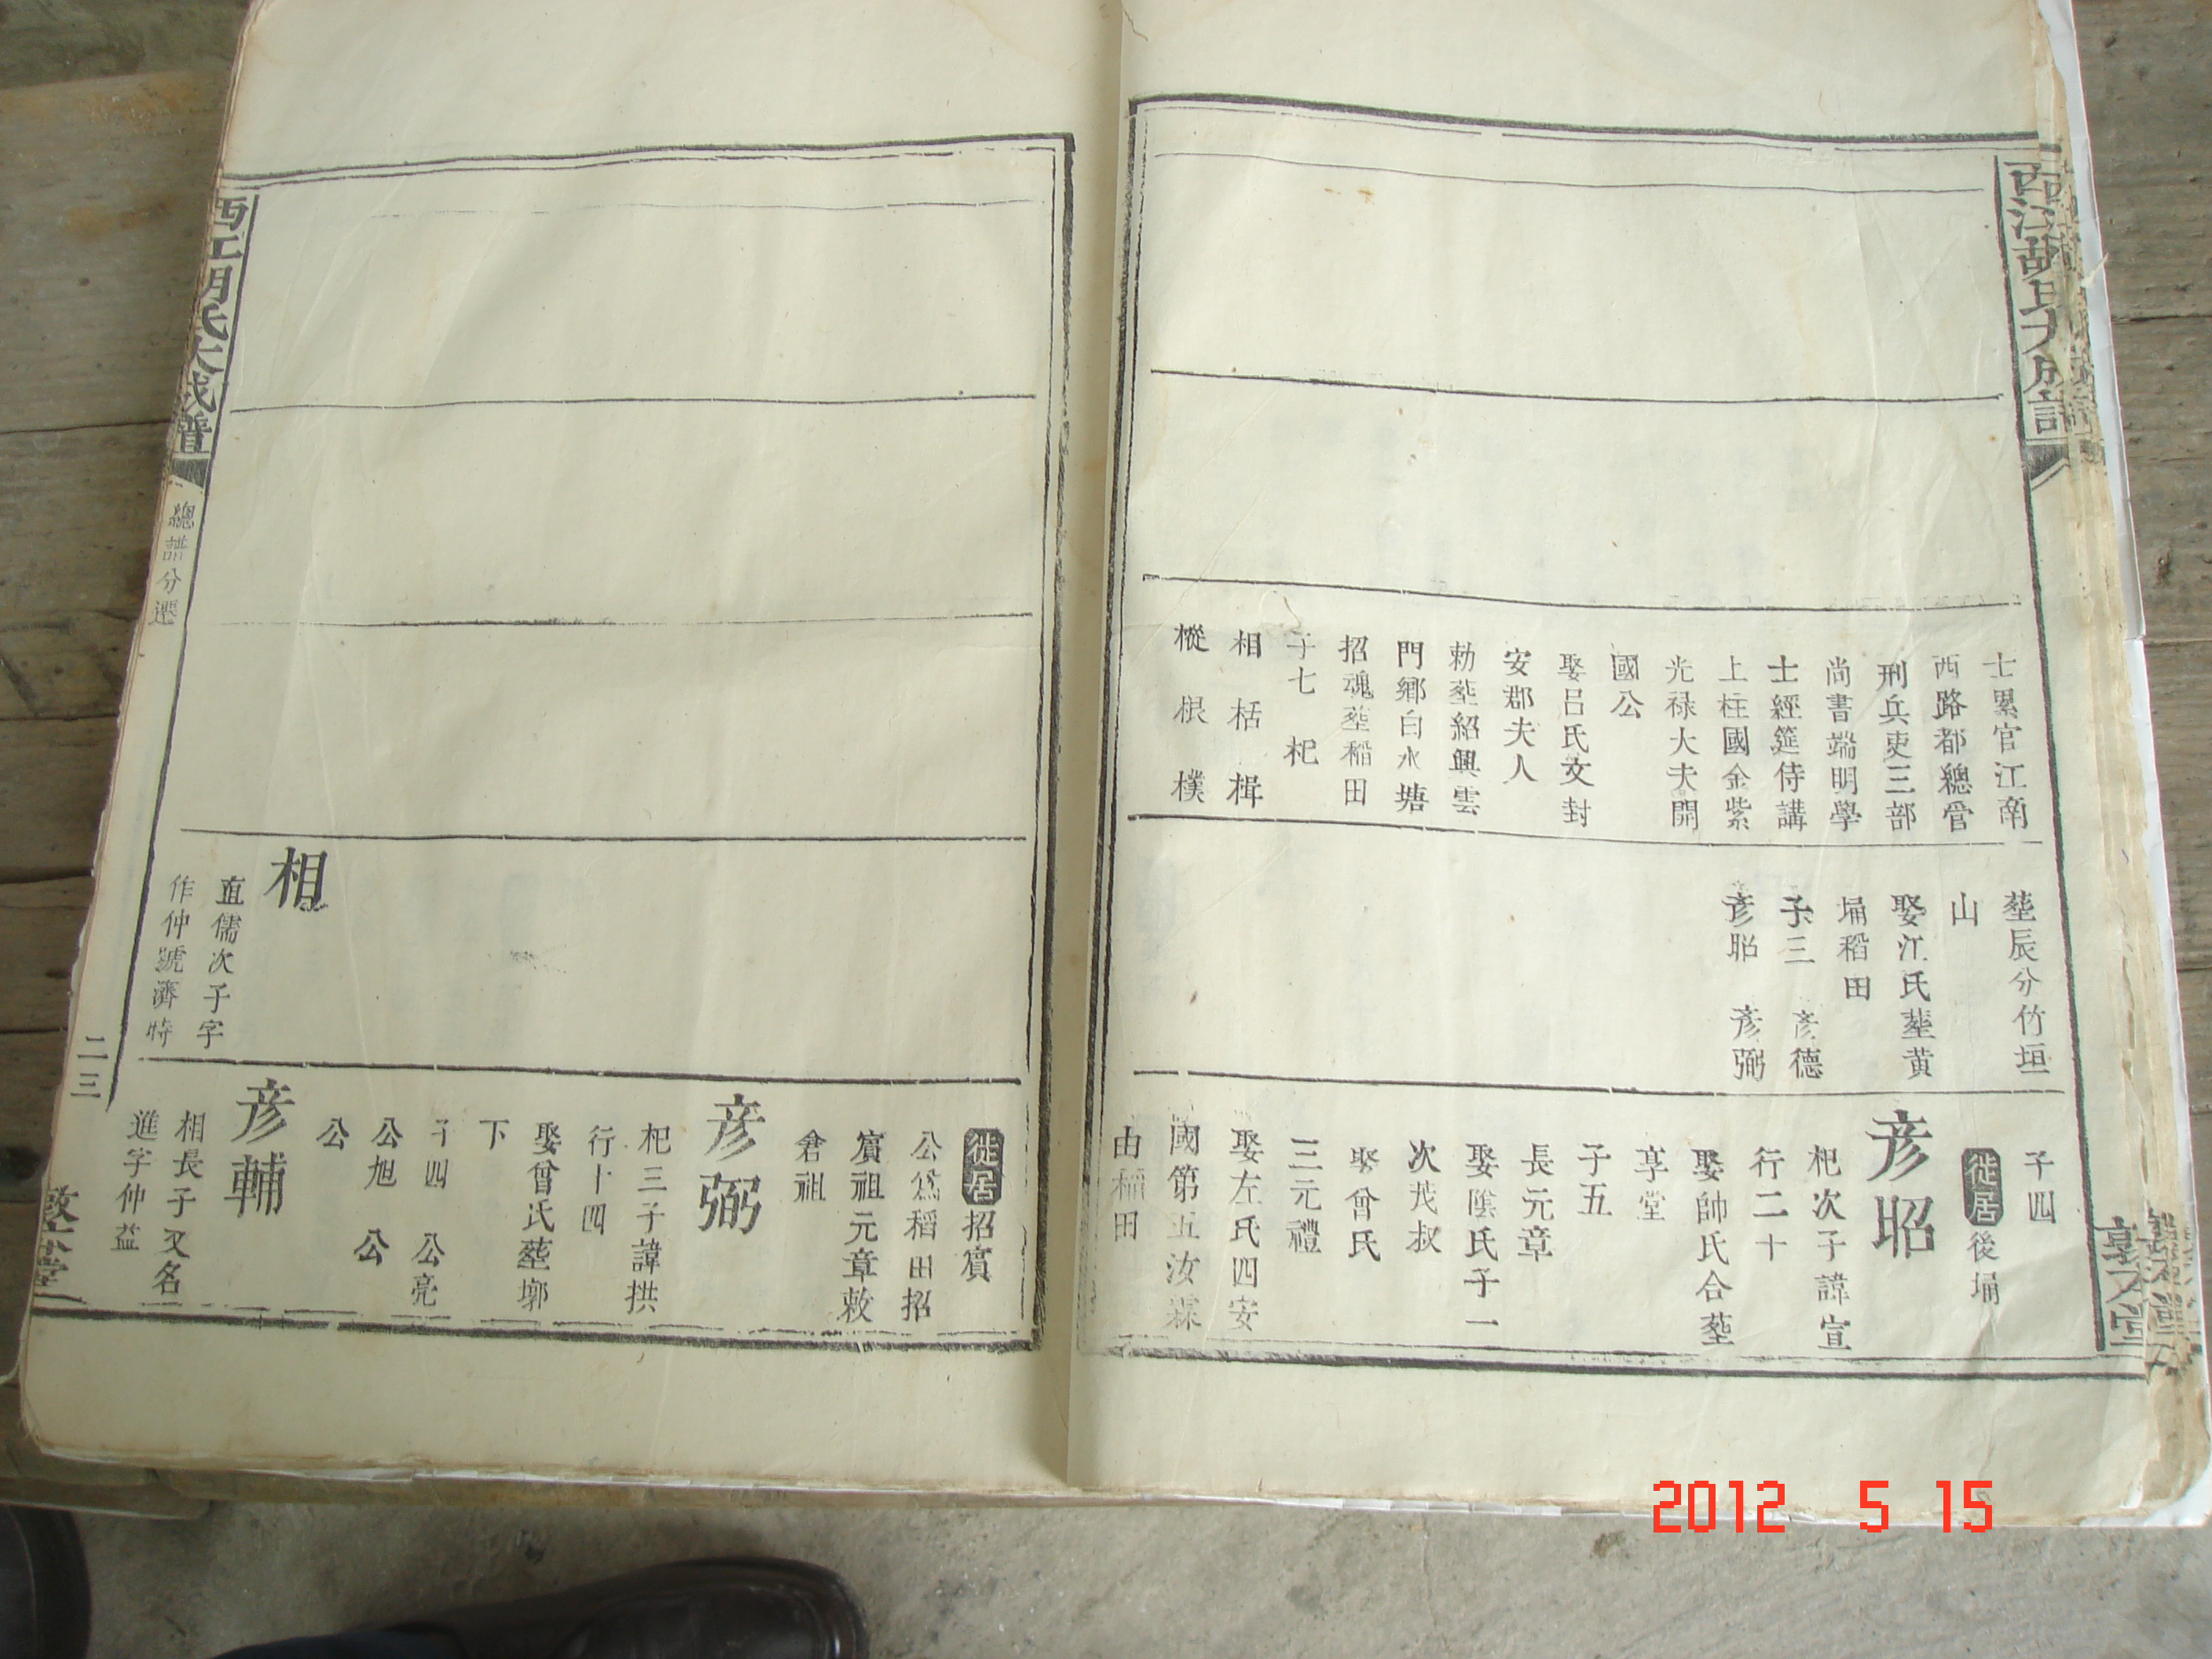 西江胡氏大成譜
士累官江南
西路都總管
刑兵吏三部
尚書端明學
士經筵侍講
上柱國金紫
光祿大夫開
國公
娶呂氏文封
安郡夫人
勅塟紹興雲
門鄉白水塘
招魂塟稻田
子七 杞
相 栝 楫
樅 根 樸
塟辰分竹垣
山
娶江氏塟黄
埇稻田
子三 彥德
彥昭 彥弼
子四
徙居後埇
彥昭
杞次子諱宣
行二十
娶帥氏合塟
享堂
子五
長元章
娶陰氏子一
次茂叔
娶曾氏
三元禮
娶左氏四安
國第五汝霖
由稻田
敦本堂
徙居招賓
公爲稻田招
賓祖元章敕
倉祖
彥弼
杞三子諱拱
行十四
娶曾氏塟郭
下
子四 公亮
公旭 公
公
相
直儒次子字
作仲號濟時
彥輔
相長子又名
進字仲益
西江胡氏大成譜
總譜分遷
二三
敦本堂
2012 5 15